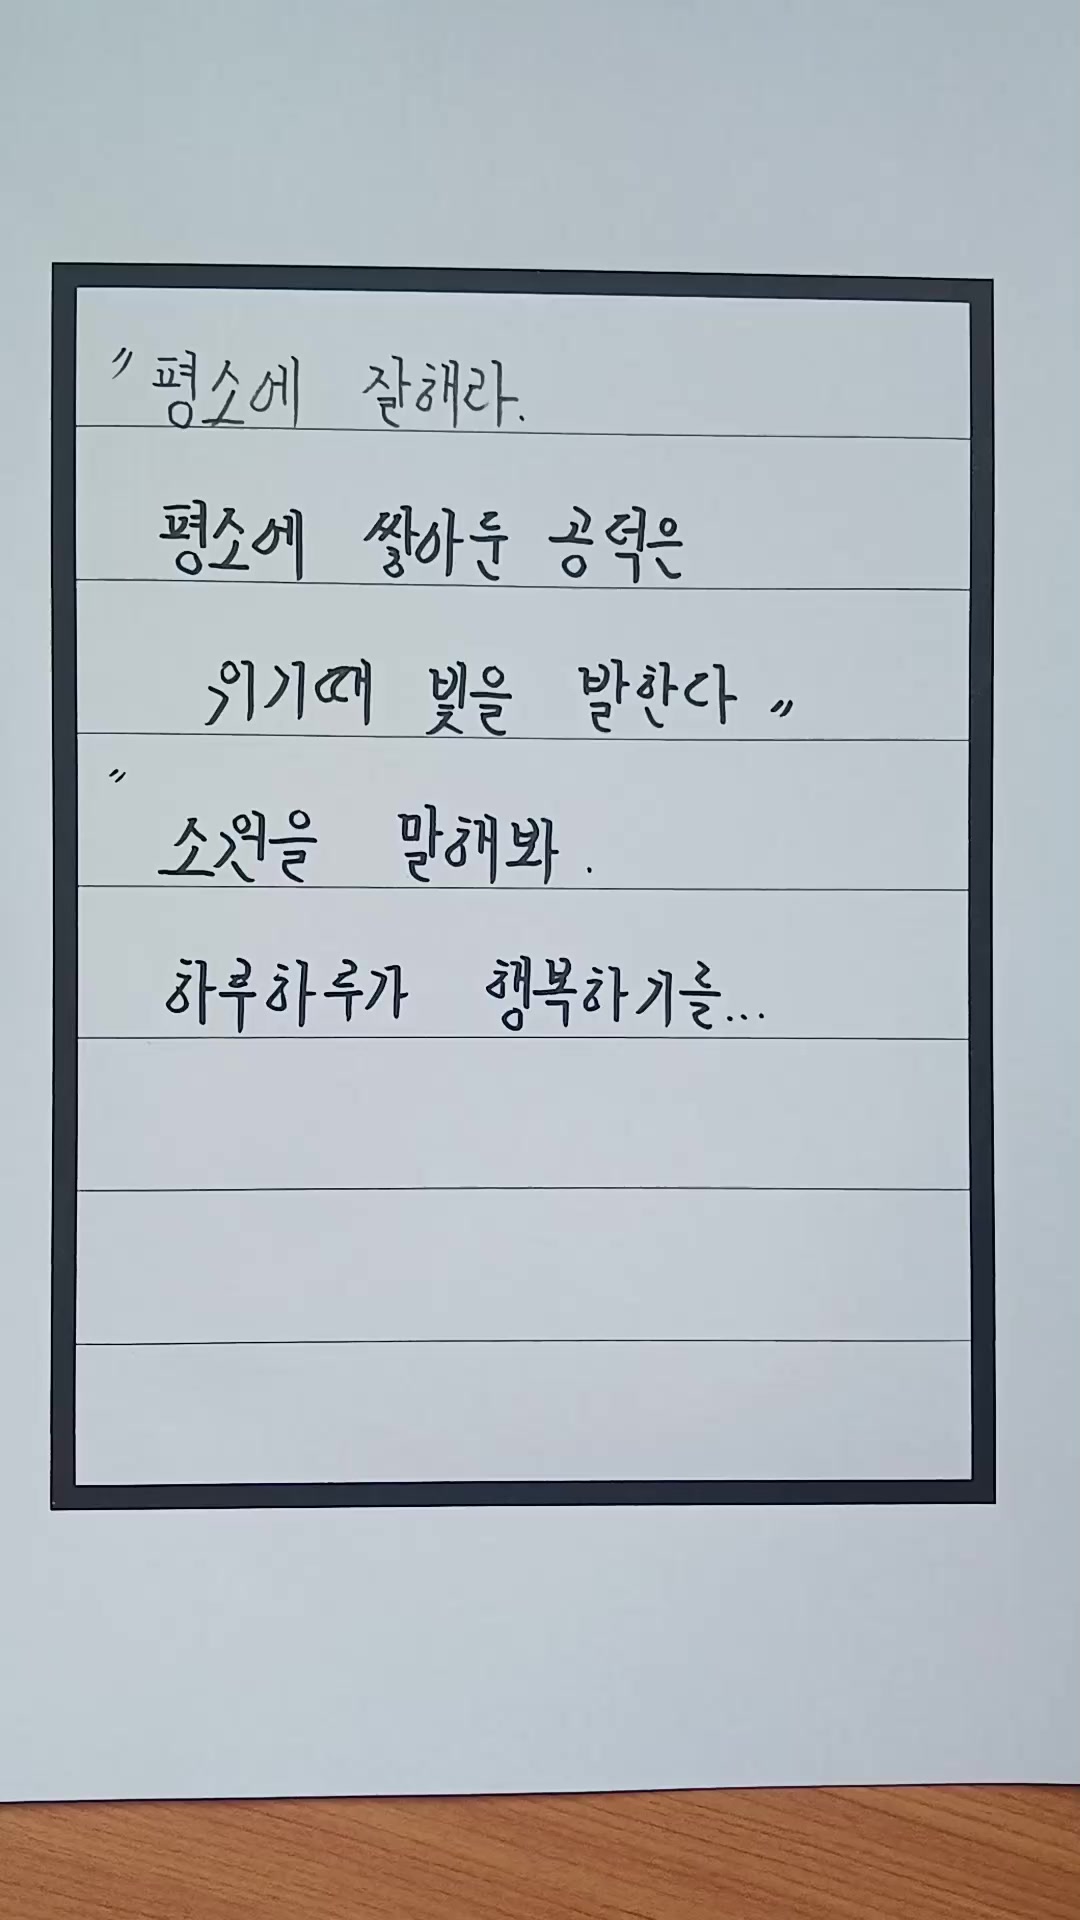 " 평소에 잘해라.
평소에 쌓아둔 공덕은
위기때 빛을 발한다 "
"
소원을 말해봐.
하루하루가 행복하기를...